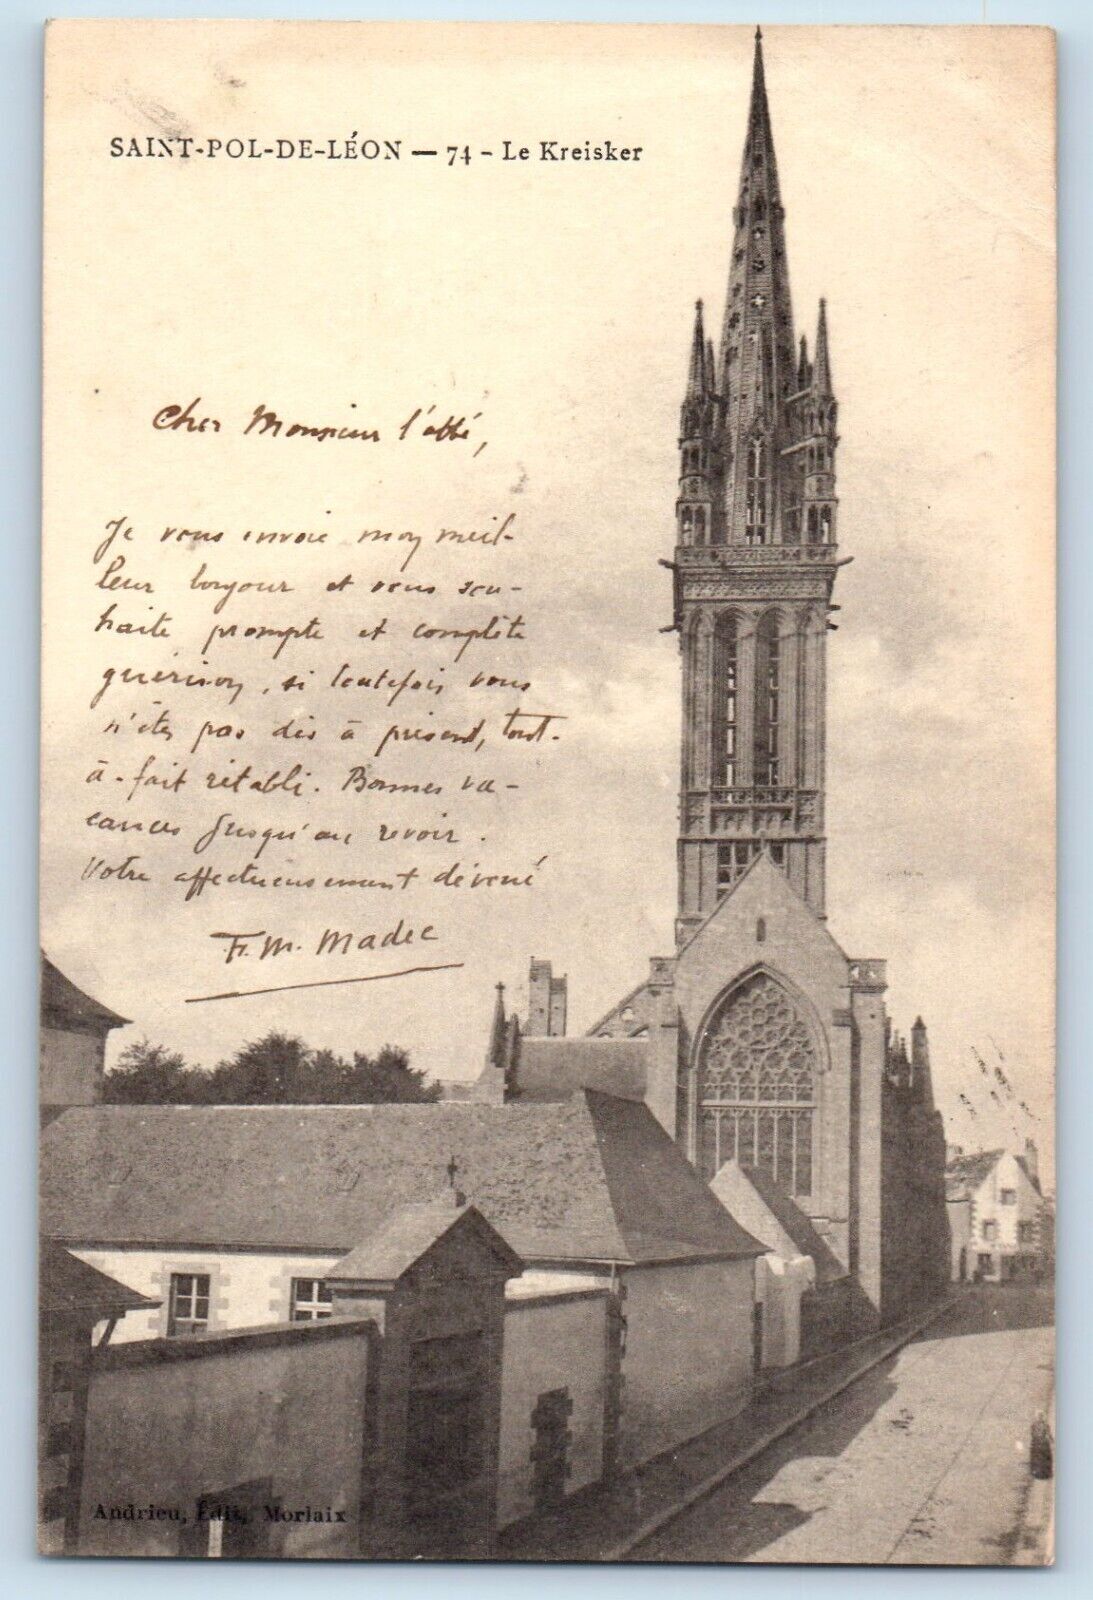 SAINT-POL-DE-LÉON — 74 - Le Kreisker
Cher Monsieur l'abbé,
Je vous envoie mon meil-
leur bonjour et vous sou-
haite prompte et complète
guérison, si toutefois vous
n'êtes pas dès à présent, tout-
à-fait rétabli. Bonnes va-
cances jusqu'au revoir.
Votre affectueusement dévoué
F. M. Madec
Andrieu, Édit, Morlaix